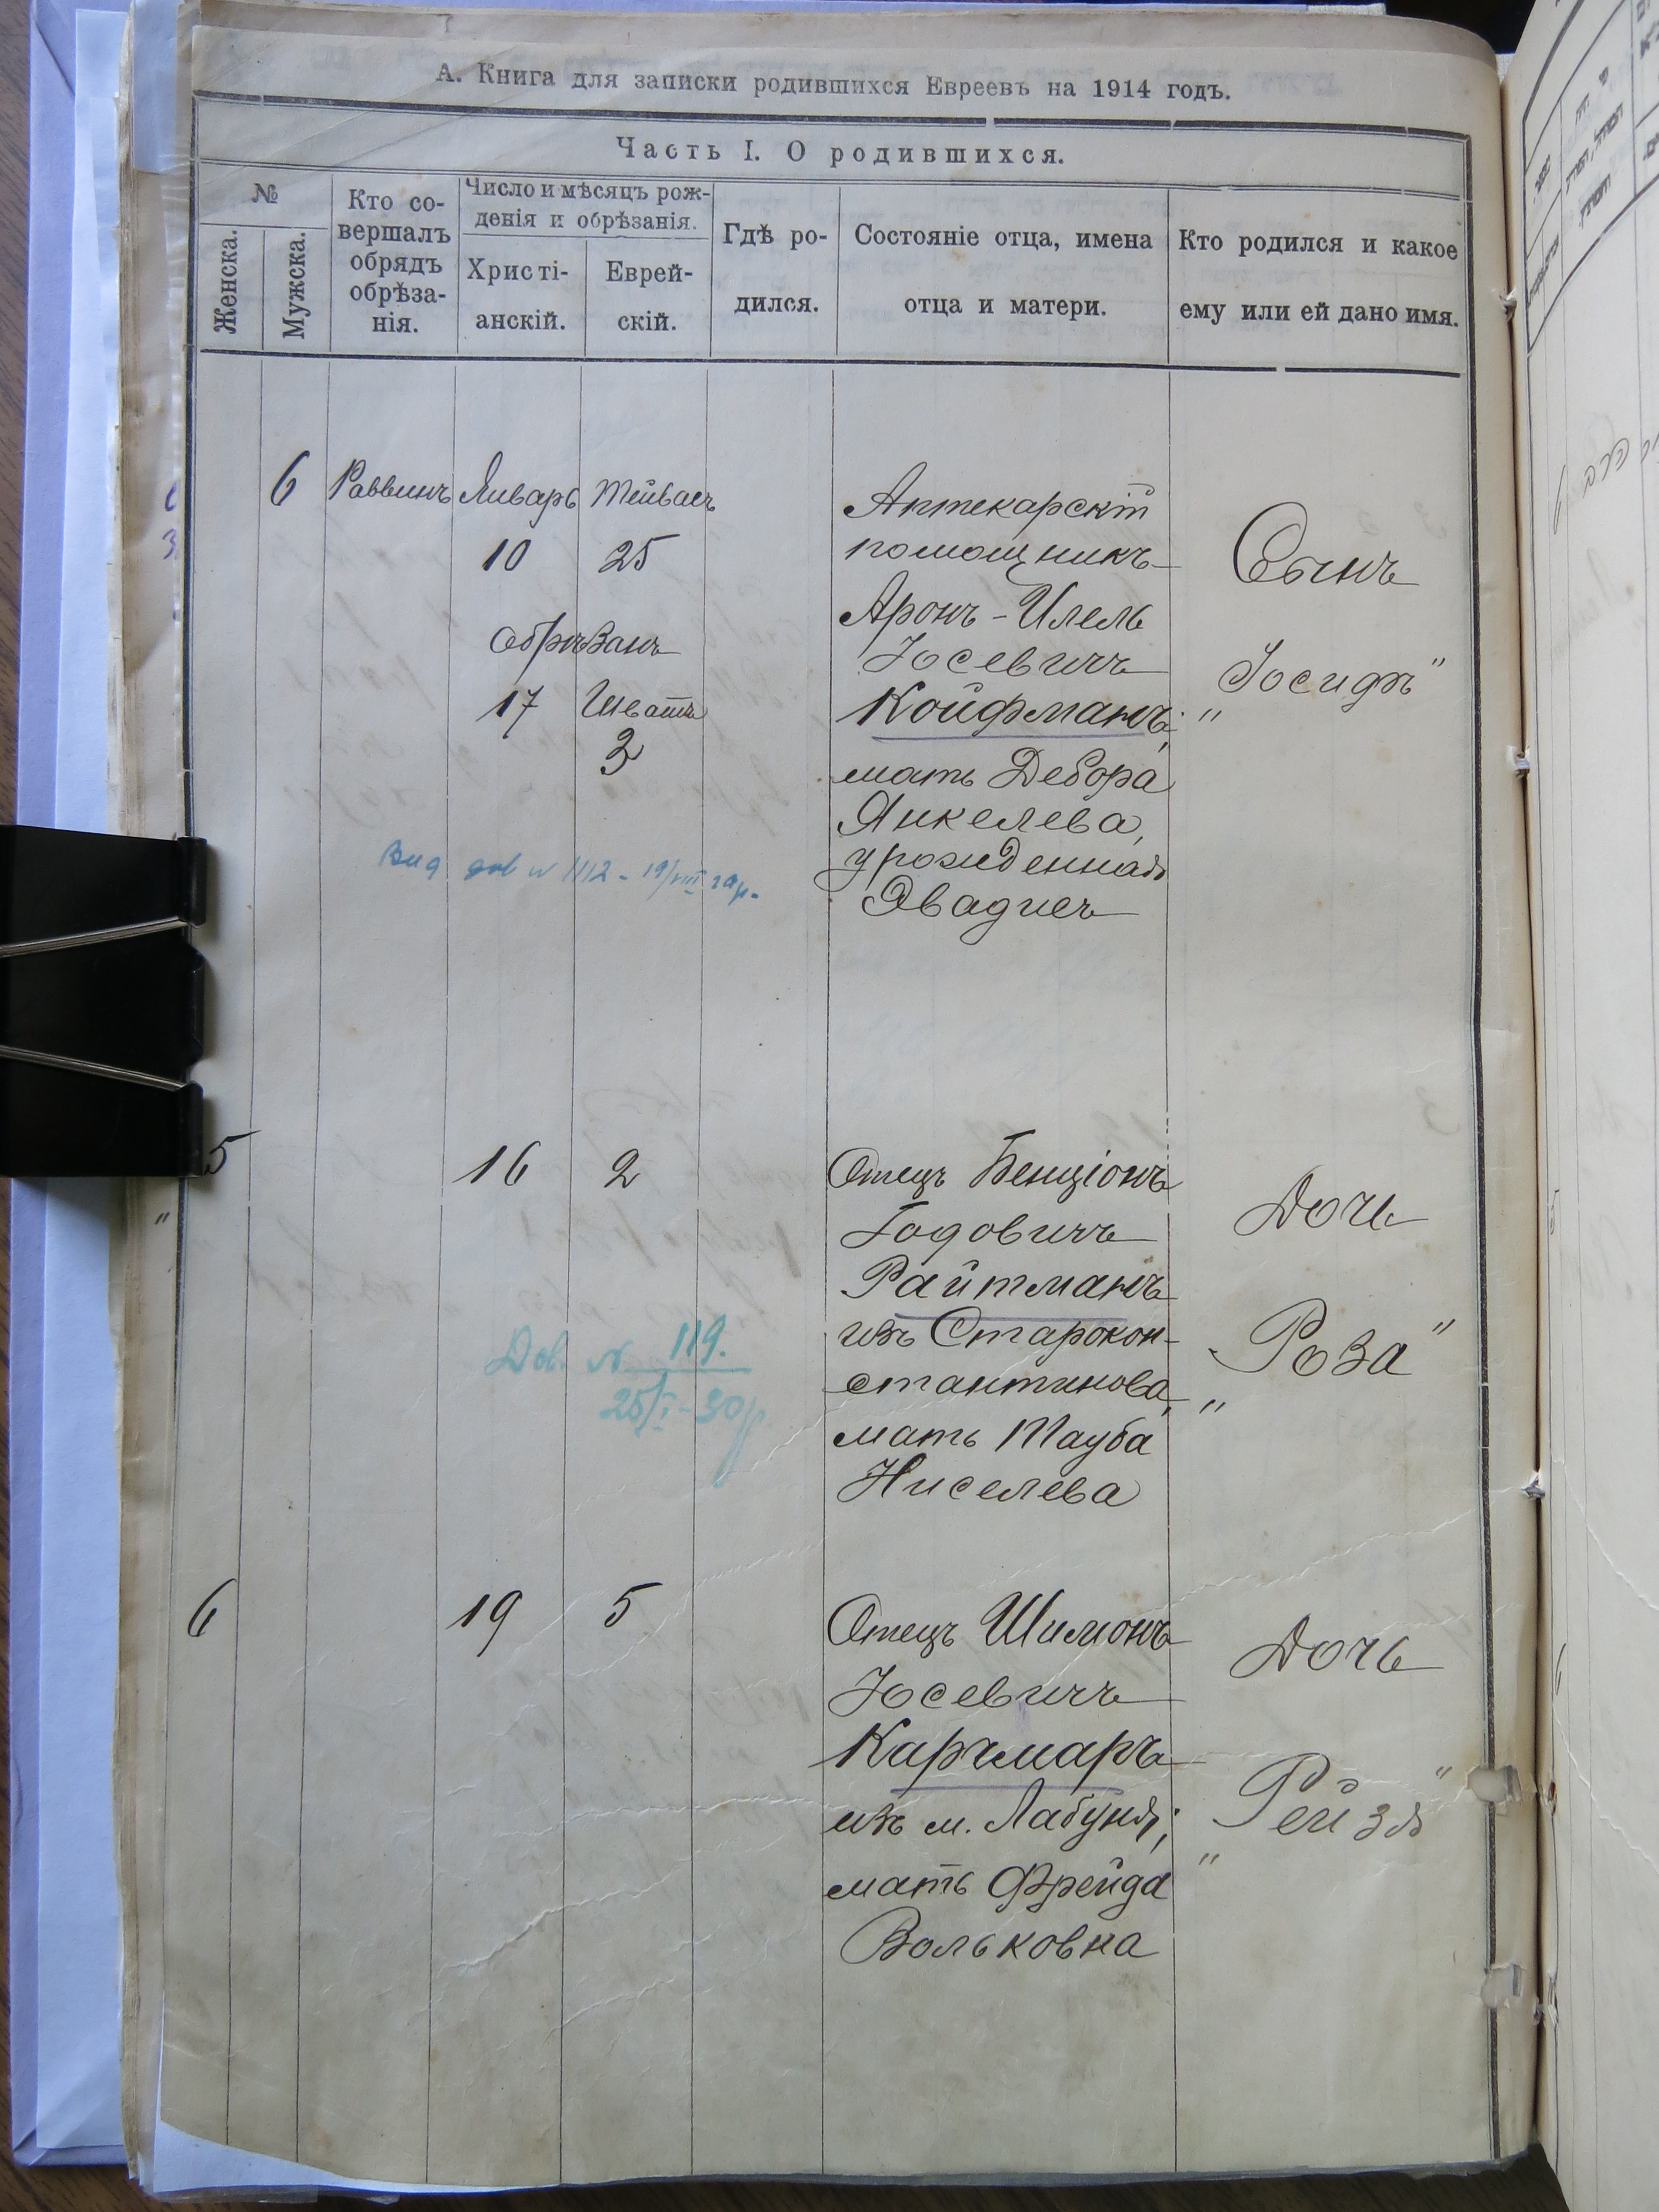 А. Книга для записки родившихся Евреевъ на 1914 годъ.
Часть I. О родившихся.
№
Женска.
Мужска.
Кто со-
вершалъ
обрядъ
обрѣза-
нія.
Число и мѣсяцъ рож-
денія и обрѣзанія.
Христі-
анскій.
Еврей-
скій.
Гдѣ ро-
дился.
Состояніе отца, имена
отца и матери.
Кто родился и какое
ему или ей дано имя.
6 Раввинъ Январь Тейвасъ
10 25
Обрѣзанъ
17 Шватъ
3
Аптекарскій
помощникъ
Аронъ-Илель
Іосевичъ
Койфманъ;
мать Дебора
Янкелева,
урожденная
Эвадисъ
Сынъ
„Іосифъ"
№ 1112 - 19/VIII
5 16 2
Отецъ Бенціонъ
Годовичъ
Райтманъ
изъ Старокон-
стантинова,
мать Тауба
Ниселева
Дочь
„Роза"
Дов. № 119.
25/I - 30 г.
6 19 5
Отецъ Шимонъ
Іосевичъ
Карчмаръ
изъ м. Лабуня;
мать Фрейда
Вольковна
Дочь
„Рейзя"